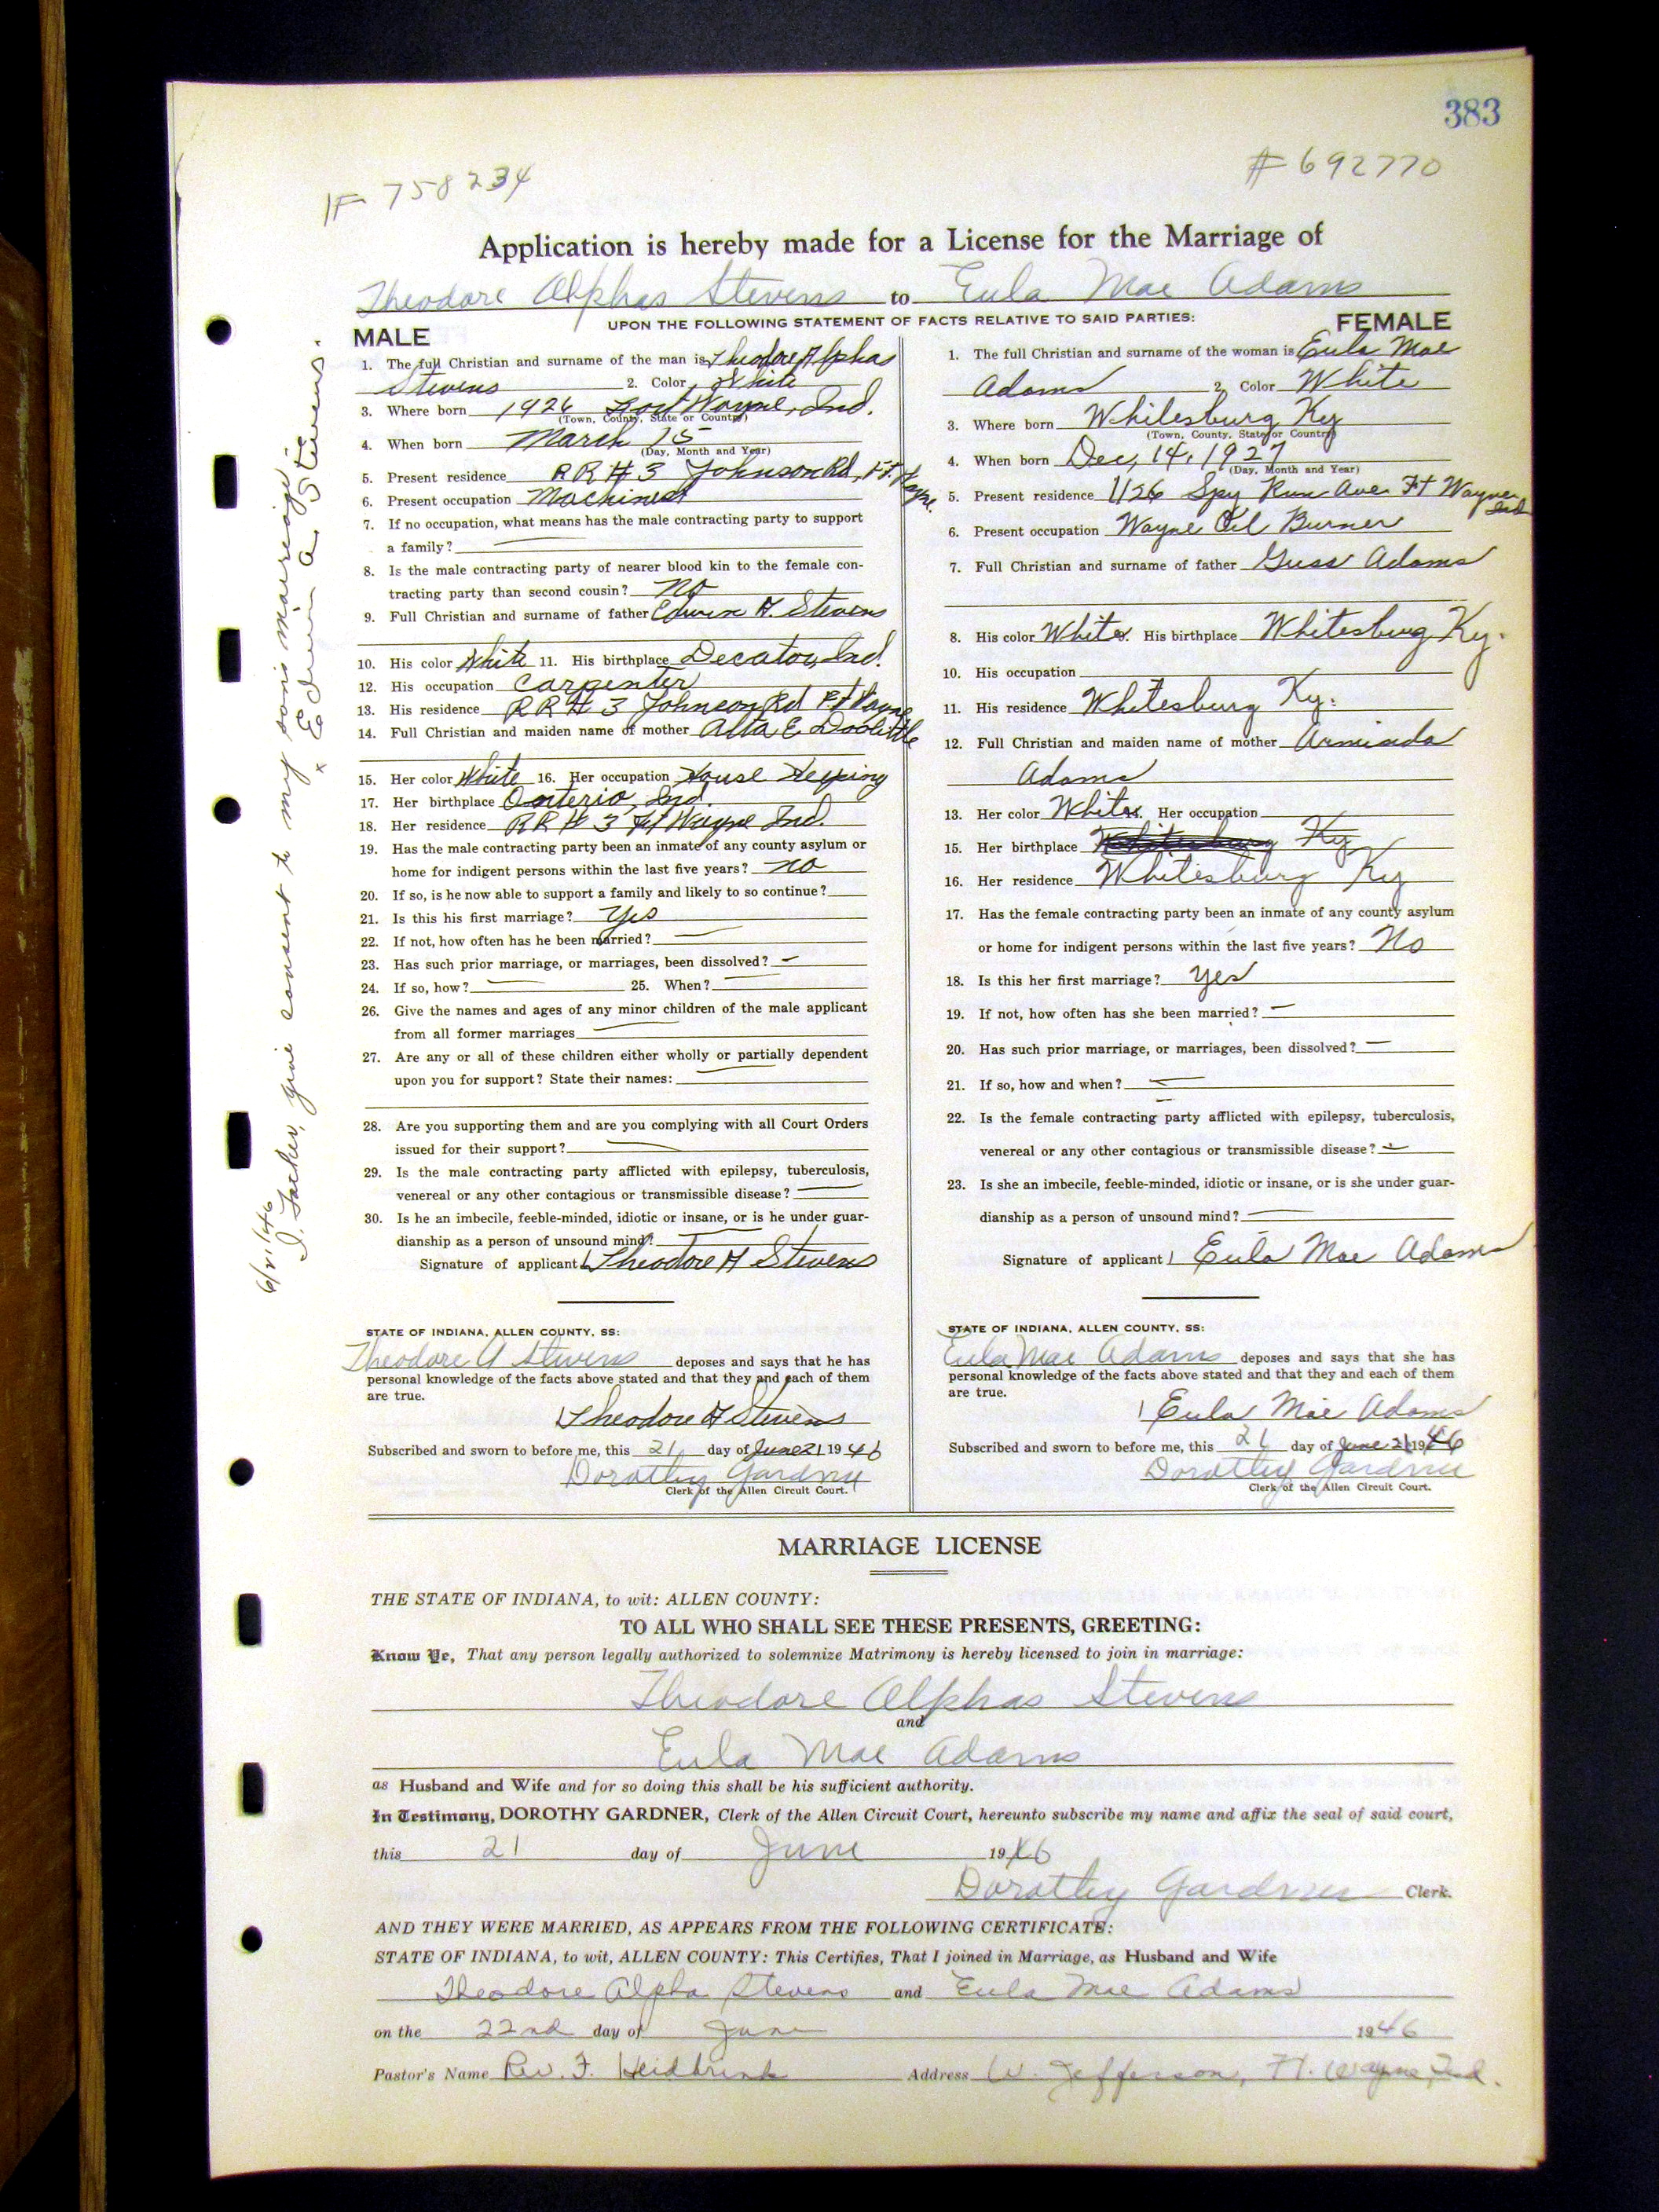 383
# 758234
# 692770
Application is hereby made for a License for the Marriage of
Theodore Alphas Stevens to Eula Mae Adams
UPON THE FOLLOWING STATEMENT OF FACTS RELATIVE TO SAID PARTIES:
MALE
1. The full Christian and surname of the man is Theodore Alphas
Stevens 2. Color White
3. Where born 1926 Fort Wayne, Ind.
(Town, County, State or Country)
4. When born March 15
(Day, Month and Year)
5. Present residence RR # 3 Johnson Rd, Ft. Wayne.
6. Present occupation Machinest
7. If no occupation, what means has the male contracting party to support
a family?
8. Is the male contracting party of nearer blood kin to the female con-
tracting party than second cousin? no
9. Full Christian and surname of father Edwin A. Stevens
10. His color White 11. His birthplace Decator, Ind.
12. His occupation Carpenter
13. His residence RR # 3 Johnson Rd Ft Wayne
14. Full Christian and maiden name of mother Alta E Doolittle
15. Her color White 16. Her occupation House Keeping
17. Her birthplace Onterio, Ind.
18. Her residence RR # 3 Ft Wayne Ind.
19. Has the male contracting party been an inmate of any county asylum or
home for indigent persons within the last five years? no
20. If so, is he now able to support a family and likely to so continue?
21. Is this his first marriage? yes
22. If not, how often has he been married? —
23. Has such prior marriage, or marriages, been dissolved? -
24. If so, how? — 25. When? —
26. Give the names and ages of any minor children of the male applicant
from all former marriages —
27. Are any or all of these children either wholly or partially dependent
upon you for support? State their names: —
28. Are you supporting them and are you complying with all Court Orders
issued for their support? —
29. Is the male contracting party afflicted with epilepsy, tuberculosis,
venereal or any other contagious or transmissible disease? —
30. Is he an imbecile, feeble-minded, idiotic or insane, or is he under guar-
dianship as a person of unsound mind? —
Signature of applicant Theodore A Stevens
STATE OF INDIANA, ALLEN COUNTY, SS:
Theodore A Stevens deposes and says that he has
personal knowledge of the facts above stated and that they and each of them
are true.
Theodore A Stevens
Subscribed and sworn to before me, this 21 day of June 21 19 46
Dorothy Gardner
Clerk of the Allen Circuit Court.
FEMALE
1. The full Christian and surname of the woman is Eula Mae
Adams 2. Color White
3. Where born Whitesburg Ky
(Town, County, State or Country)
4. When born Dec, 14, 1927
(Day, Month and Year)
5. Present residence 1126 Spy Run Ave Ft Wayne Ind
6. Present occupation Wayne Oil Burner
7. Full Christian and surname of father Guss Adams
8. His color White 9. His birthplace Whitesburg Ky.
10. His occupation
11. His residence Whitesburg Ky.
12. Full Christian and maiden name of mother Arminda
Adams
13. Her color White 14. Her occupation
15. Her birthplace Whitesburg Ky
16. Her residence Whitesburg Ky
17. Has the female contracting party been an inmate of any county asylum
or home for indigent persons within the last five years? No
18. Is this her first marriage? yes
19. If not, how often has she been married? —
20. Has such prior marriage, or marriages, been dissolved? —
21. If so, how and when? —
22. Is the female contracting party afflicted with epilepsy, tuberculosis,
venereal or any other contagious or transmissible disease? —
23. Is she an imbecile, feeble-minded, idiotic or insane, or is she under guar-
dianship as a person of unsound mind? —
Signature of applicant Eula Mae Adams
STATE OF INDIANA, ALLEN COUNTY, SS:
Eula Mae Adams deposes and says that she has
personal knowledge of the facts above stated and that they and each of them
are true.
Eula Mae Adams
Subscribed and sworn to before me, this 21 day of June 21 1946
Dorothy Gardner
Clerk of the Allen Circuit Court.
6/21/46
I, Father, give consent to my sons mairreage.
x Edwin A. Stevens.
MARRIAGE LICENSE
THE STATE OF INDIANA, to wit: ALLEN COUNTY:
TO ALL WHO SHALL SEE THESE PRESENTS, GREETING:
Know Ye, That any person legally authorized to solemnize Matrimony is hereby licensed to join in marriage:
Theodore Alphas Stevens
and
Eula Mae Adams
as Husband and Wife and for so doing this shall be his sufficient authority.
In Testimony, DOROTHY GARDNER, Clerk of the Allen Circuit Court, hereunto subscribe my name and affix the seal of said court,
this 21 day of June 1946
Dorothy Gardner Clerk.
AND THEY WERE MARRIED, AS APPEARS FROM THE FOLLOWING CERTIFICATE:
STATE OF INDIANA, to wit, ALLEN COUNTY: This Certifies, That I joined in Marriage, as Husband and Wife
Theodore Alpha Stevens and Eula Mae Adams
on the 22nd day of June 1946
Pastor's Name Rev. F. Heidbrink Address W. Jefferson, Ft. Wayne, Ind.